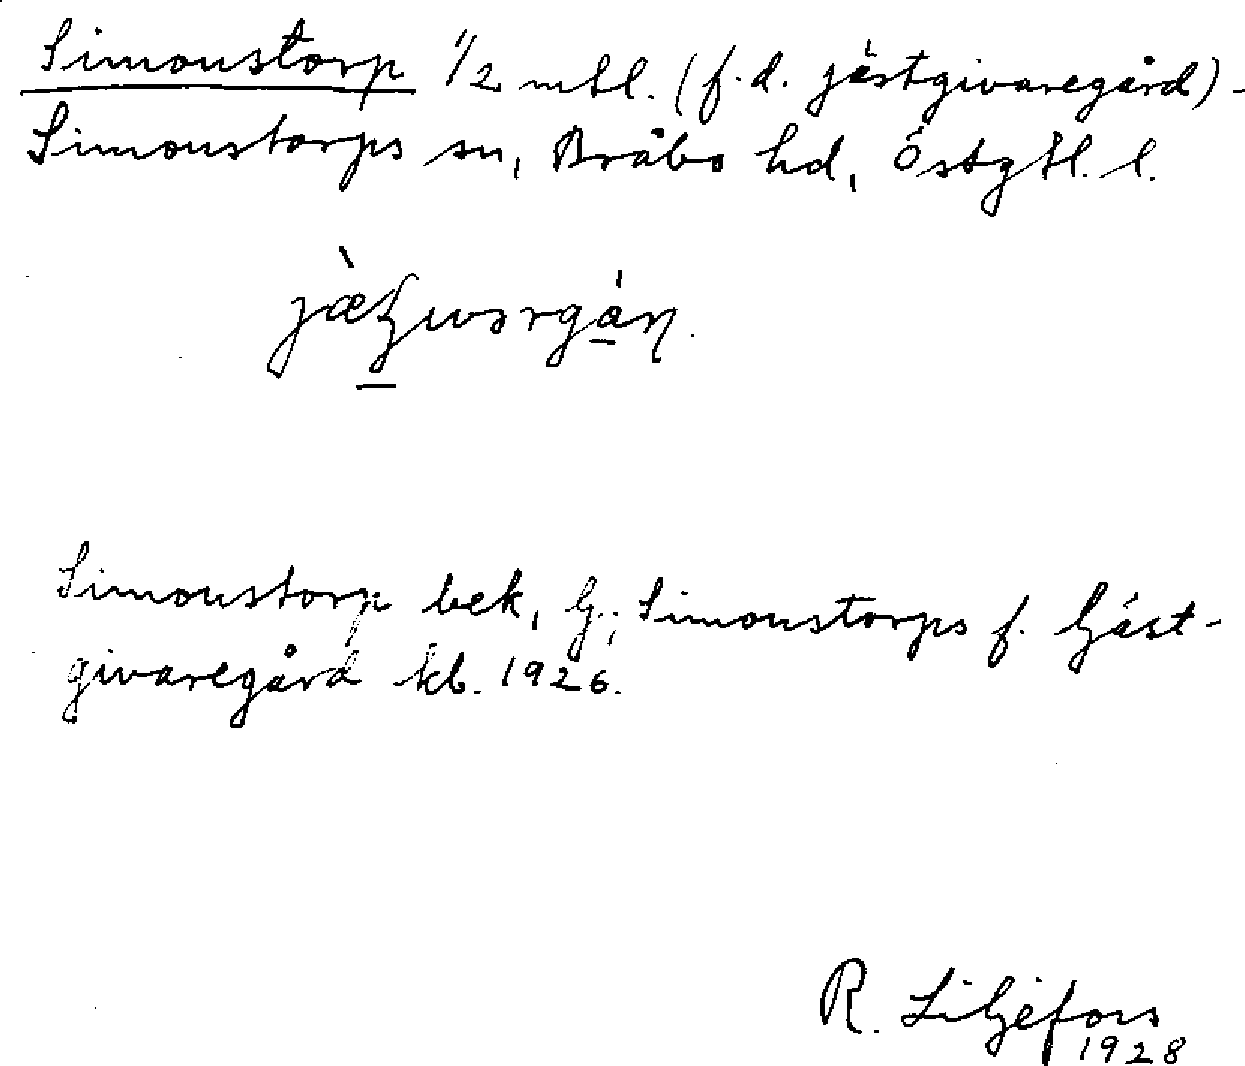 Simonstorp 1/2 mtl. (f.d. jästgivaregård) -
Simonstorps sn, Bråbo hd, Östgtl. l.
Simonstorp bek, Gj; Simonstorps f. Gäst-
givaregård kb. 1926.
R. Liljefors
1928